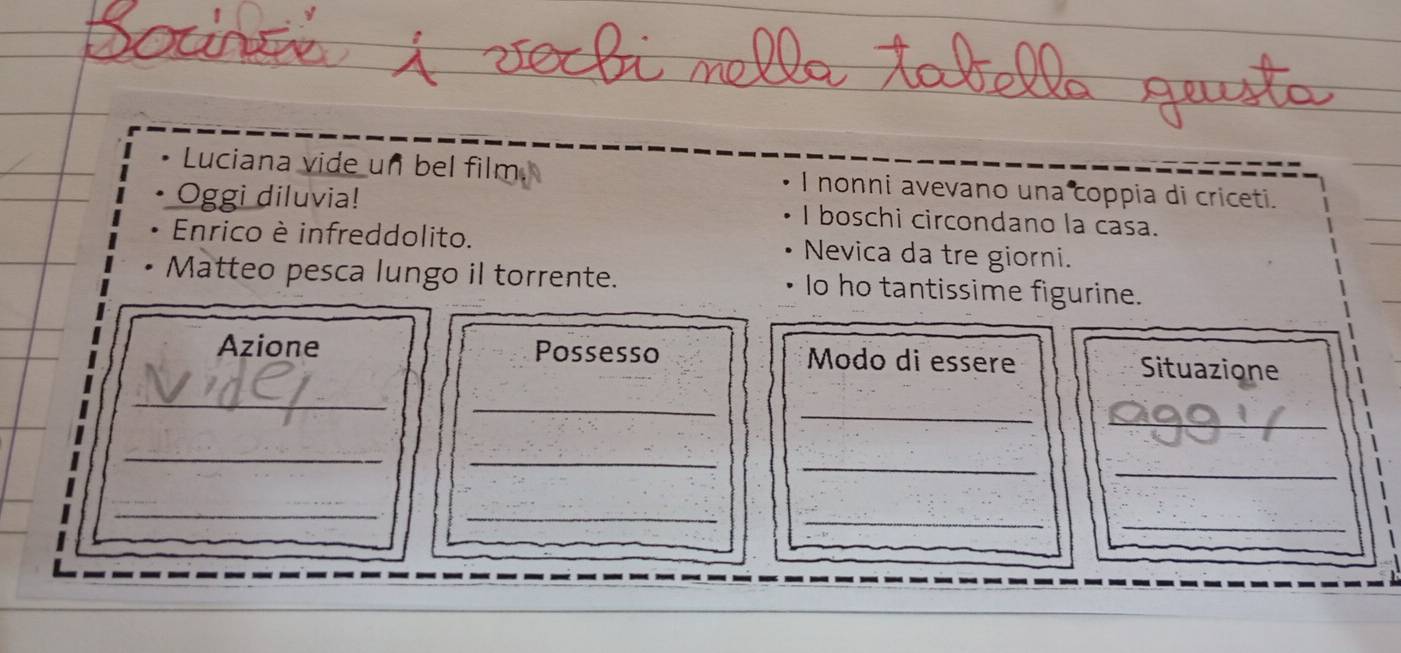 i verbi nella tabella giusta
• Luciana vide un bel film.
• Oggi diluvia!
• Enrico è infreddolito.
• Matteo pesca lungo il torrente.
• I nonni avevano una coppia di criceti.
• I boschi circondano la casa.
• Nevica da tre giorni.
• Io ho tantissime figurine.
Azione
Vide,
Possesso
Modo di essere
Situazione
oggi,